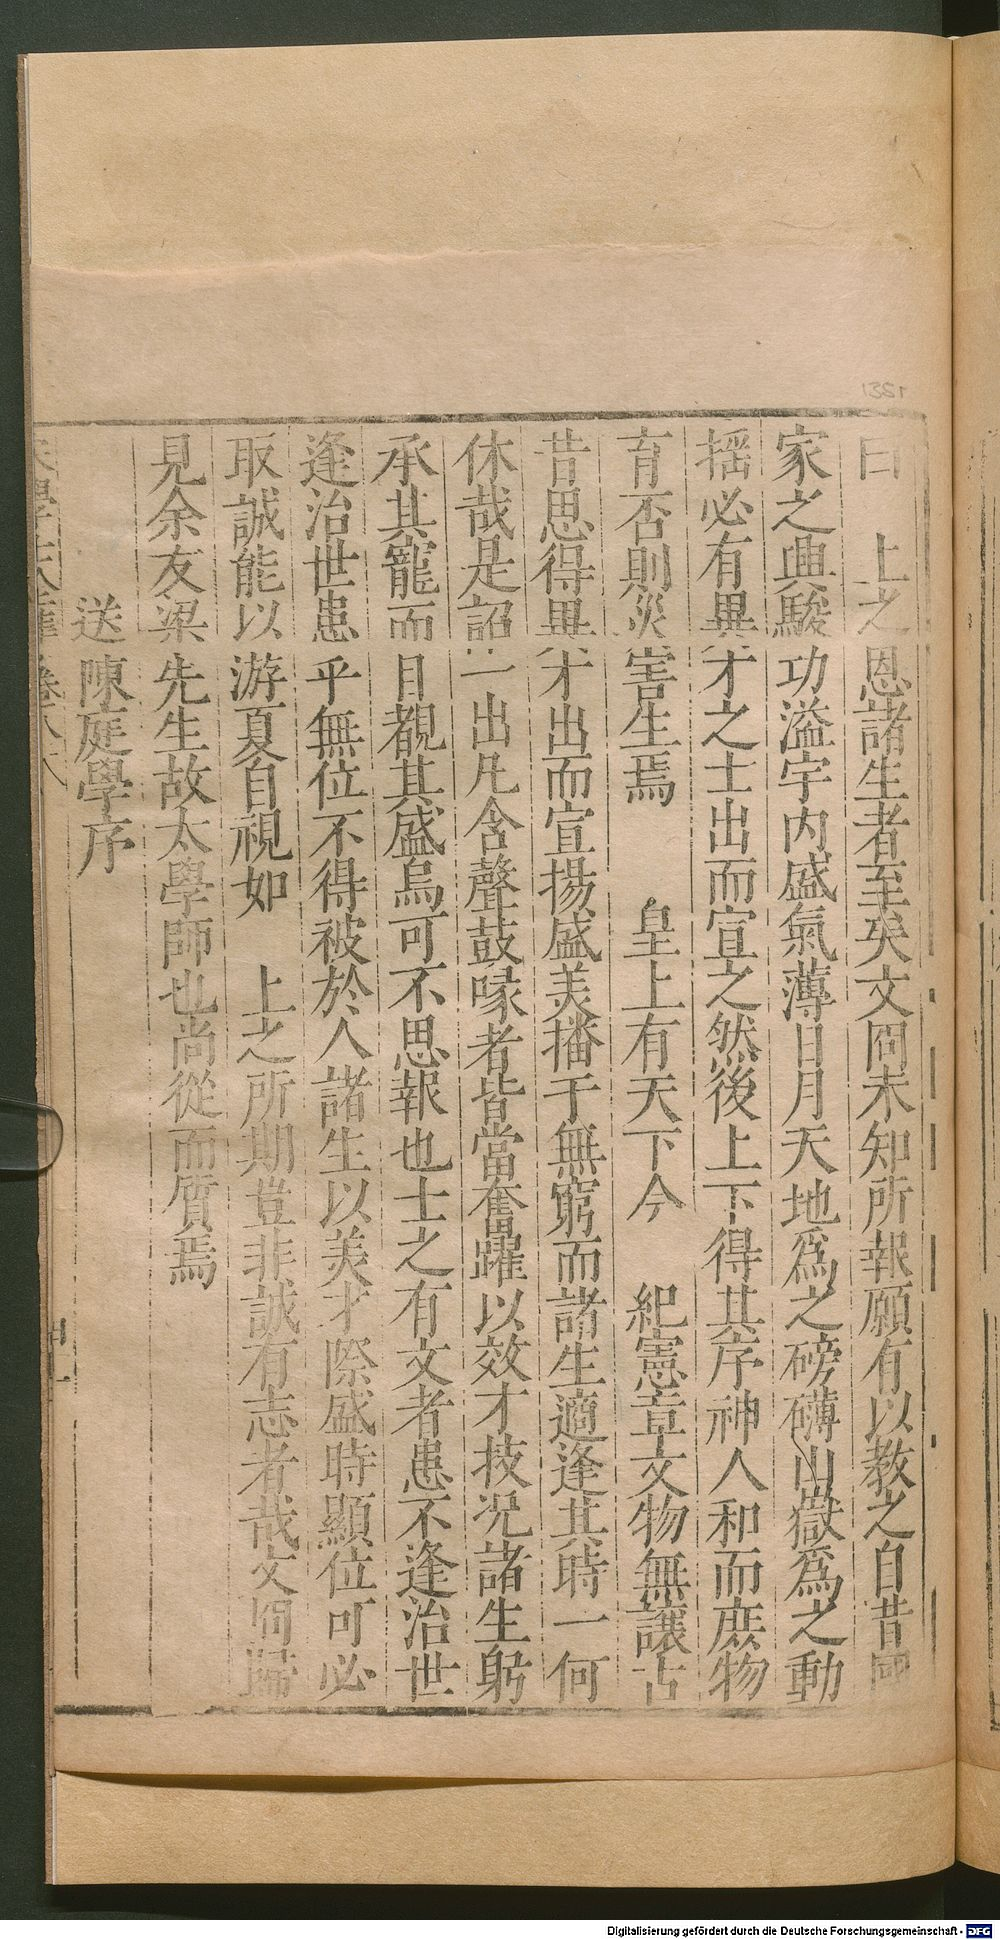 曰　上之恩諸生者至矣文冏未知所報願有以教之自昔國
家之興駿功溢宇内盛氣薄日月天地爲之磅礴山嶽爲之動
揺必有異才之士出而宣之然後上下得其序神人和而庶物
育否則災害生焉　皇上有天下今　紀憲章文物無讓古
昔思得異才出而宣揚盛美播于無窮而諸生適逢其時一何
休哉是詔一出凡含聲鼓喙者皆當奮躍以效才技况諸生躬
承其寵而目覩其盛烏可不思報也士之有文者患不逢治世
逢治世患乎無位不得被於人諸生以美才際盛時顯位可必
取誠能以游夏自視如　上之所期豈非誠有志者哉文冏歸
見余友梁先生故太學師也尚從而質焉
送陳庭學序
卷八
1381
Digitalisierung gefördert durch die Deutsche Forschungsgemeinschaft - DFG